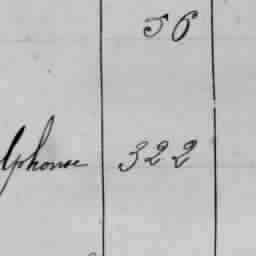 56
lphonse 322